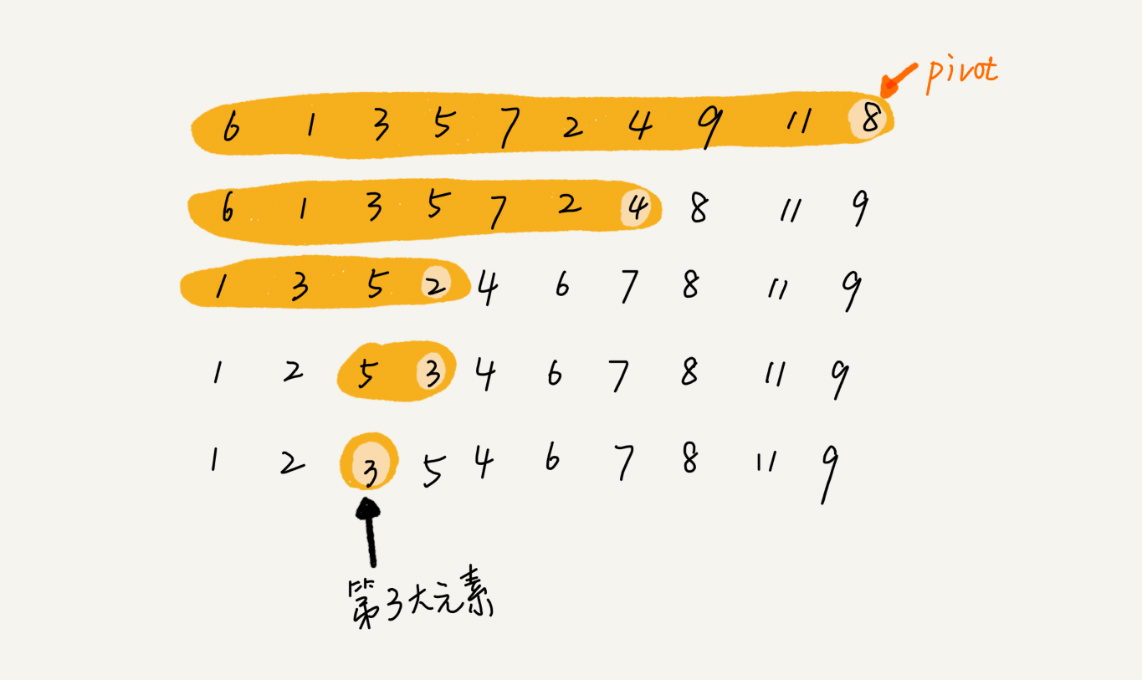 pivot
6 1 3 5 7 2 4 9 11 8
6 1 3 5 7 2 4 8 11 9
1 3 5 2 4 6 7 8 11 9
1 2 5 3 4 6 7 8 11 9
1 2 3 5 4 6 7 8 11 9
第3大元素